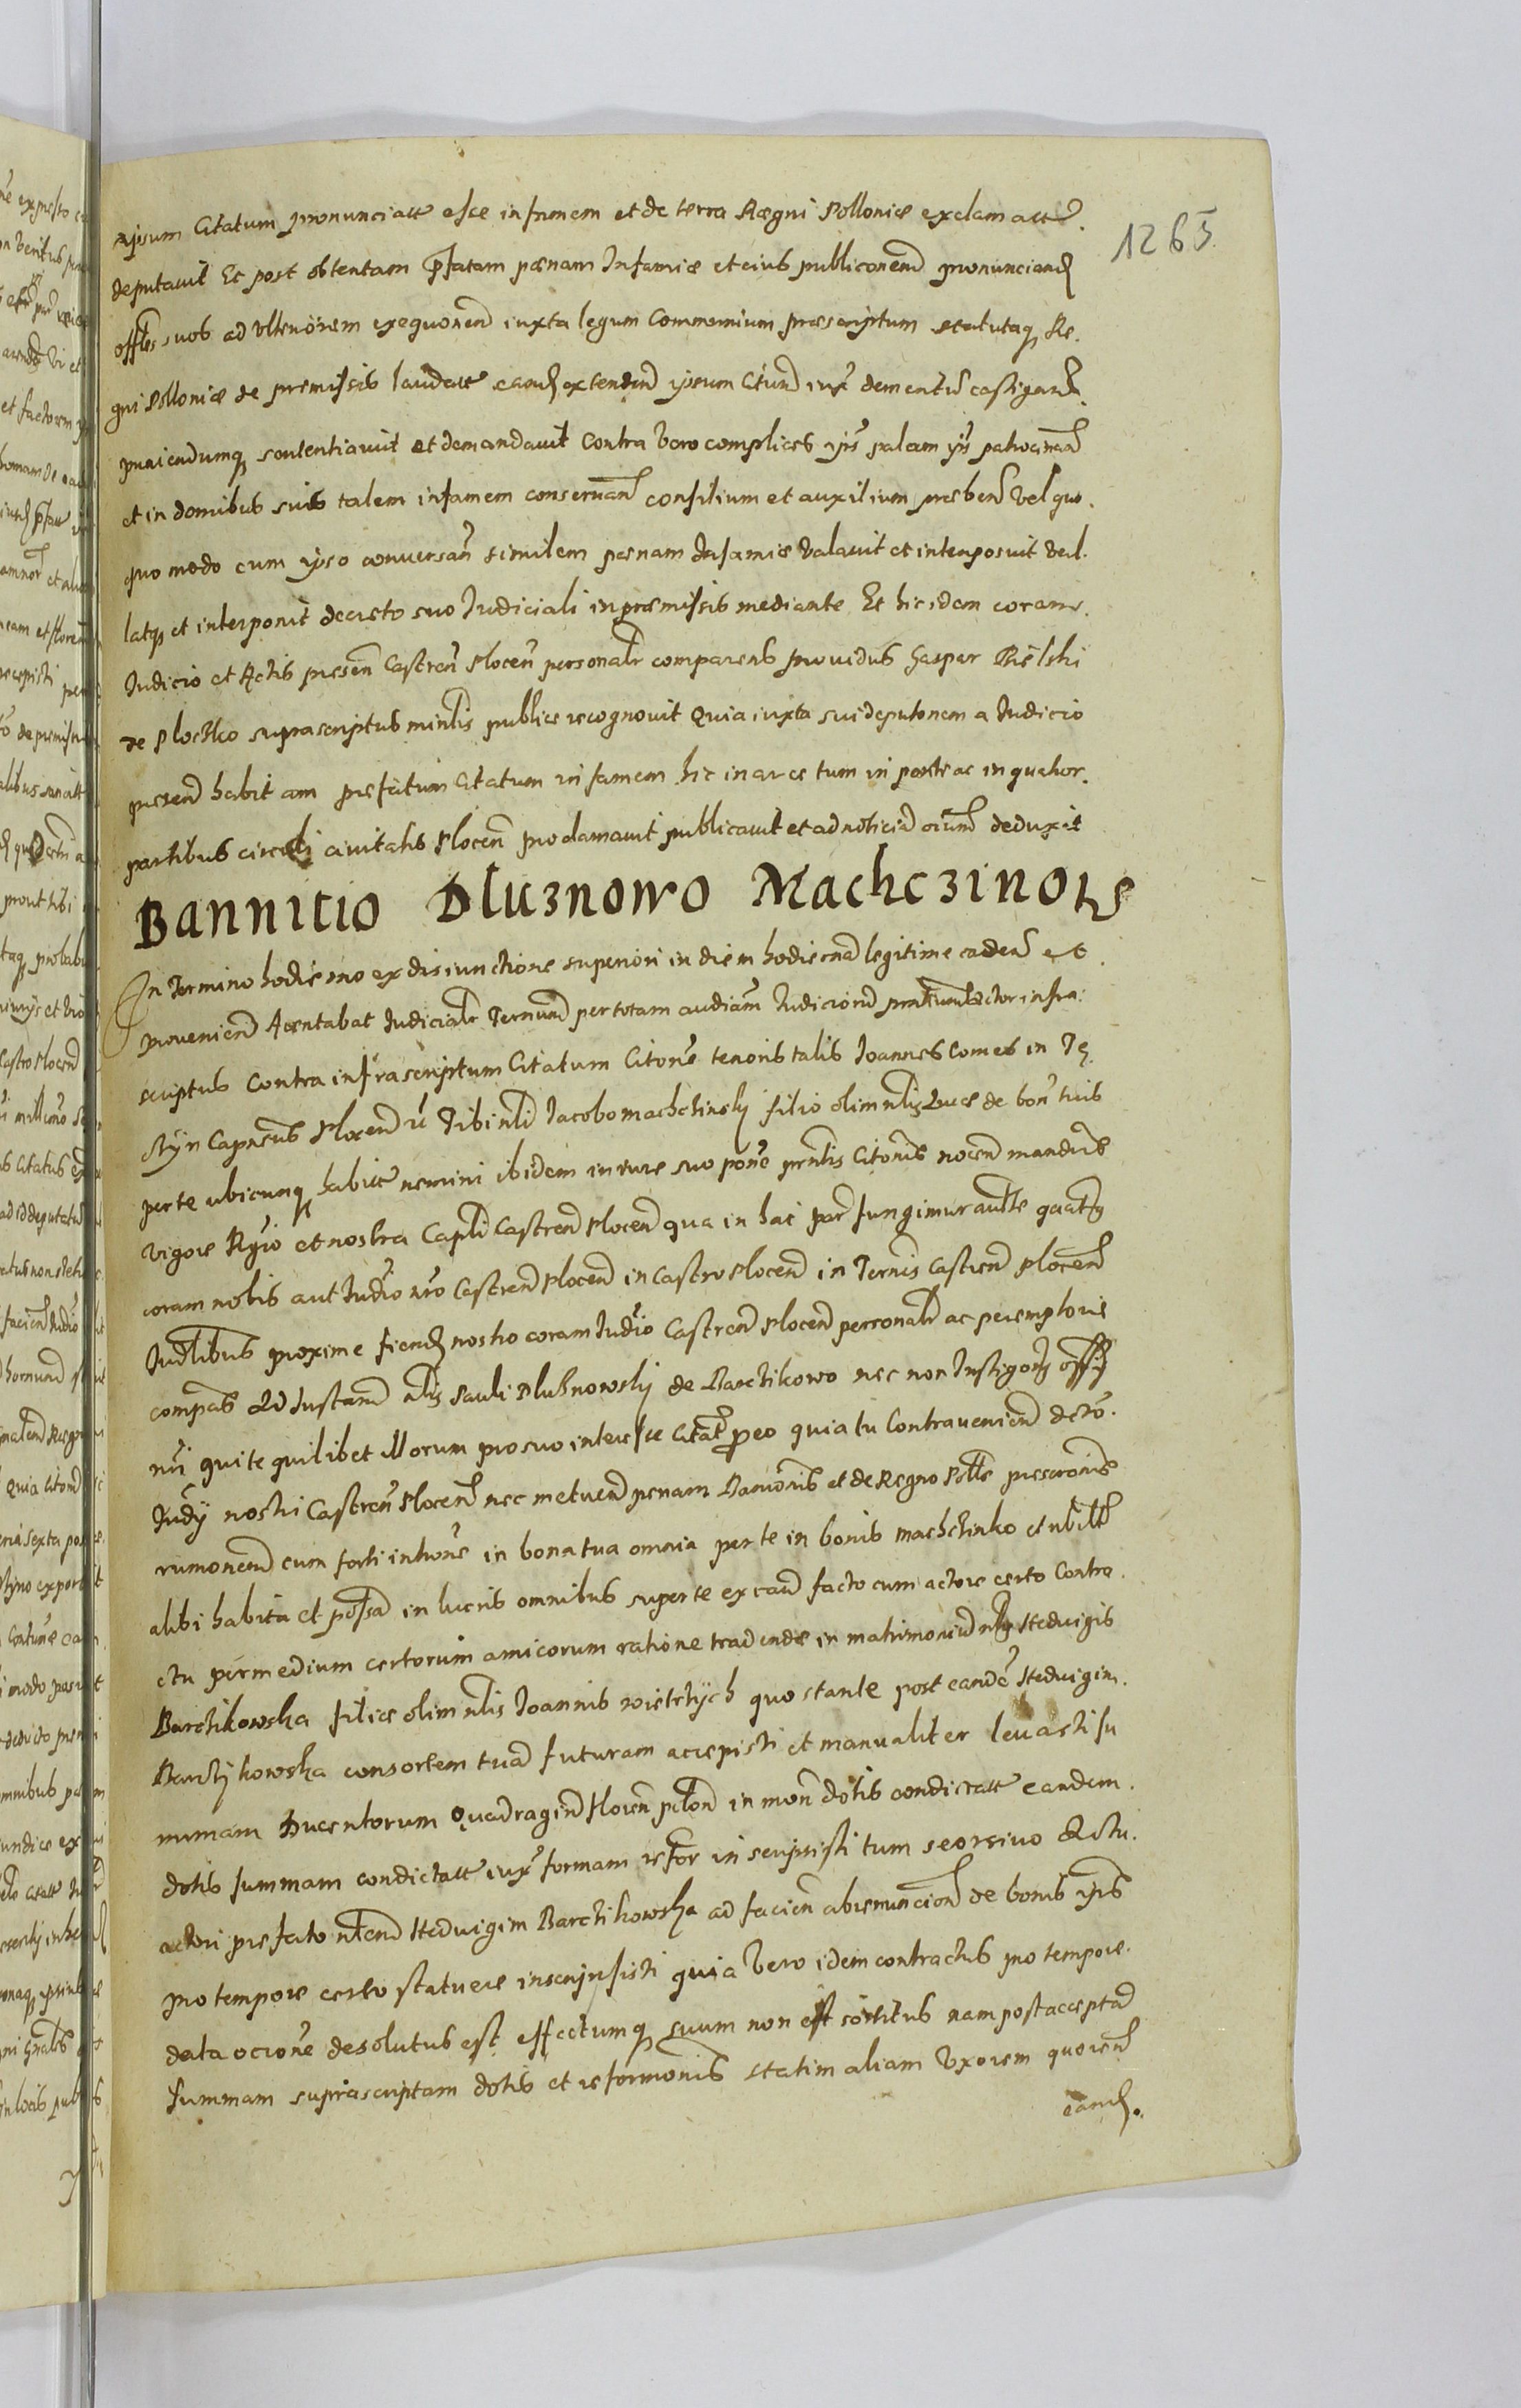 1265
ipsum Citatum pronunciatt esse infamem et de terra Regni Polloniæ exclamatt
deputavit Et post obtentam pfatam pænam Infamiæ et eius publiconem pronunciand
offles suos ad vlteriorem exequonem iuxta legum Communium præscriptum statutaq Re
gni Polloniæ de premissis laudatt extendend ipsum Citum iux dementu castigand
puniendumq sententiavit et demandavit Contra vero complices ips palam ips patrocinan
et in domibus suis talem infamem conservan consilium et auxilium preben vel quo
quo modo cum ipso conversan similem pænam Infamiæ valavit et interposuit val
latq et interponit decreto suo Iudiciali in præmissis mediante Et hic idem coram
Iudicio et Actis presen Castren Plocen personalr comparens providus Gaspar Bielski
de Ploczko suprascriptus minlis publice recognovit Quia iuxta sui deputonem a Iudicio
presend habitam prefatum Citatum infamem hic in arce tum in ponte ac in quatuor
partibus circuli civitatis Plocen proclamavit publicavit et ad noticia oium deduxit
Bannitio Dluznowo Machczinors
In Termino hodierno ex disiunctione superiori in diem hodierna legitime caden et
provenien Attentabat Iudicialr Terminum per totam audiam Iudiciond Actor infra
scriptus Contra infrascriptum Citatum Citone tenoris talis Ioannes Comes in Te
czyn Capneus Plocen Tibi nli Iacobo machczinsky filio olim nlis Lucæ de bon tuis
per te ubicunq habitt nemini ibidem in iure suo pone prntis Citonis nocen mandus
vigore Regio et nostra Caplis Castren Plocen qua in hac par fungimur autte quatq
coram nobis aut Iudio nro Castren Plocen in Castro Plocen in Ternis Castren Plocen
Iudlibus proxime fiend nostro coram Iudio Castren Plocen personalr ac peremptorie
compas Ad Instan nlis Pauli Dluznowsky de Barczikowo nec non Instigoris offy
nri qui te quilibet illorum pro suo interesse Citat pro eo quia tu Contravenien decro
Iudy nostri Castren Plocen nec metuen penam Banonis et de Regno Polle prescronis
rumonem cum forti introne in bona tua omnia per te in bonis machczinko et ubilt
alibi habita et possa in lucris omnibus super te ex cau facto cum actore certo Contra
ctu per medium certorum amicorum ratione tradendæ in matrimoniu nlis Hedvigis
Barczikowska filiæ olim nlis Ioannis wietrzych quo stante post eande Hedvigim
Barczykowska consortem tua futuram accepisti et manualiter levasti su
mmam Ducentorum Quadragin Floren polon in mon dotis condictatt eandem
dotis summam condictatt iux formam refor inscripsisti tum seorsivo Actu
actori prefato nlem Hedvigim Barczikowska ad facien abrenuncion de bonis ips
pro tempore certo statuere inscripsisti quia vero idem contractus pro tempore
data ocione desolutus est effectumq suum non est sortitus nam post accepta
summam suprascriptam dotis et reformonis statim aliam Vxorem quoren
eand.